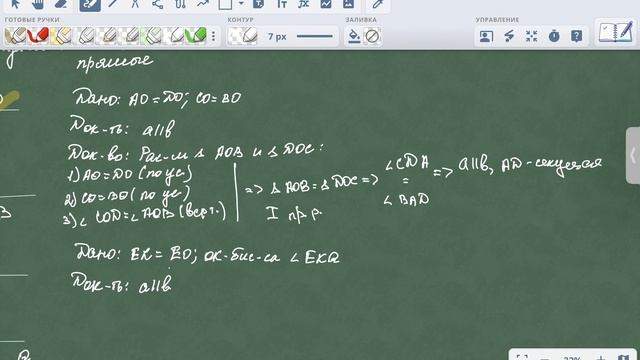 ГОТОВЫЕ РУЧКИ
КОНТУР
ЗАЛИВКА
УПРАВЛЕНИЕ
7 px
прямые
Дано: AO = DO; CO = BO
Док-ть: a||b
Док-во: Рас-м ▵ AOB и ▵ DOC:
1) AO = DO (по ус)
2) CO = BO (по ус)
3) ∠ COD = ∠ AOB (верт.)
=> ▵ AOB = ▵ DOC =>
I пр. р.
∠ CDA
=
∠ BAD
=> a||b, AD - секущая
Дано: EK = EO; OK - бис-са ∠ EKQ
Док-ть: a||b